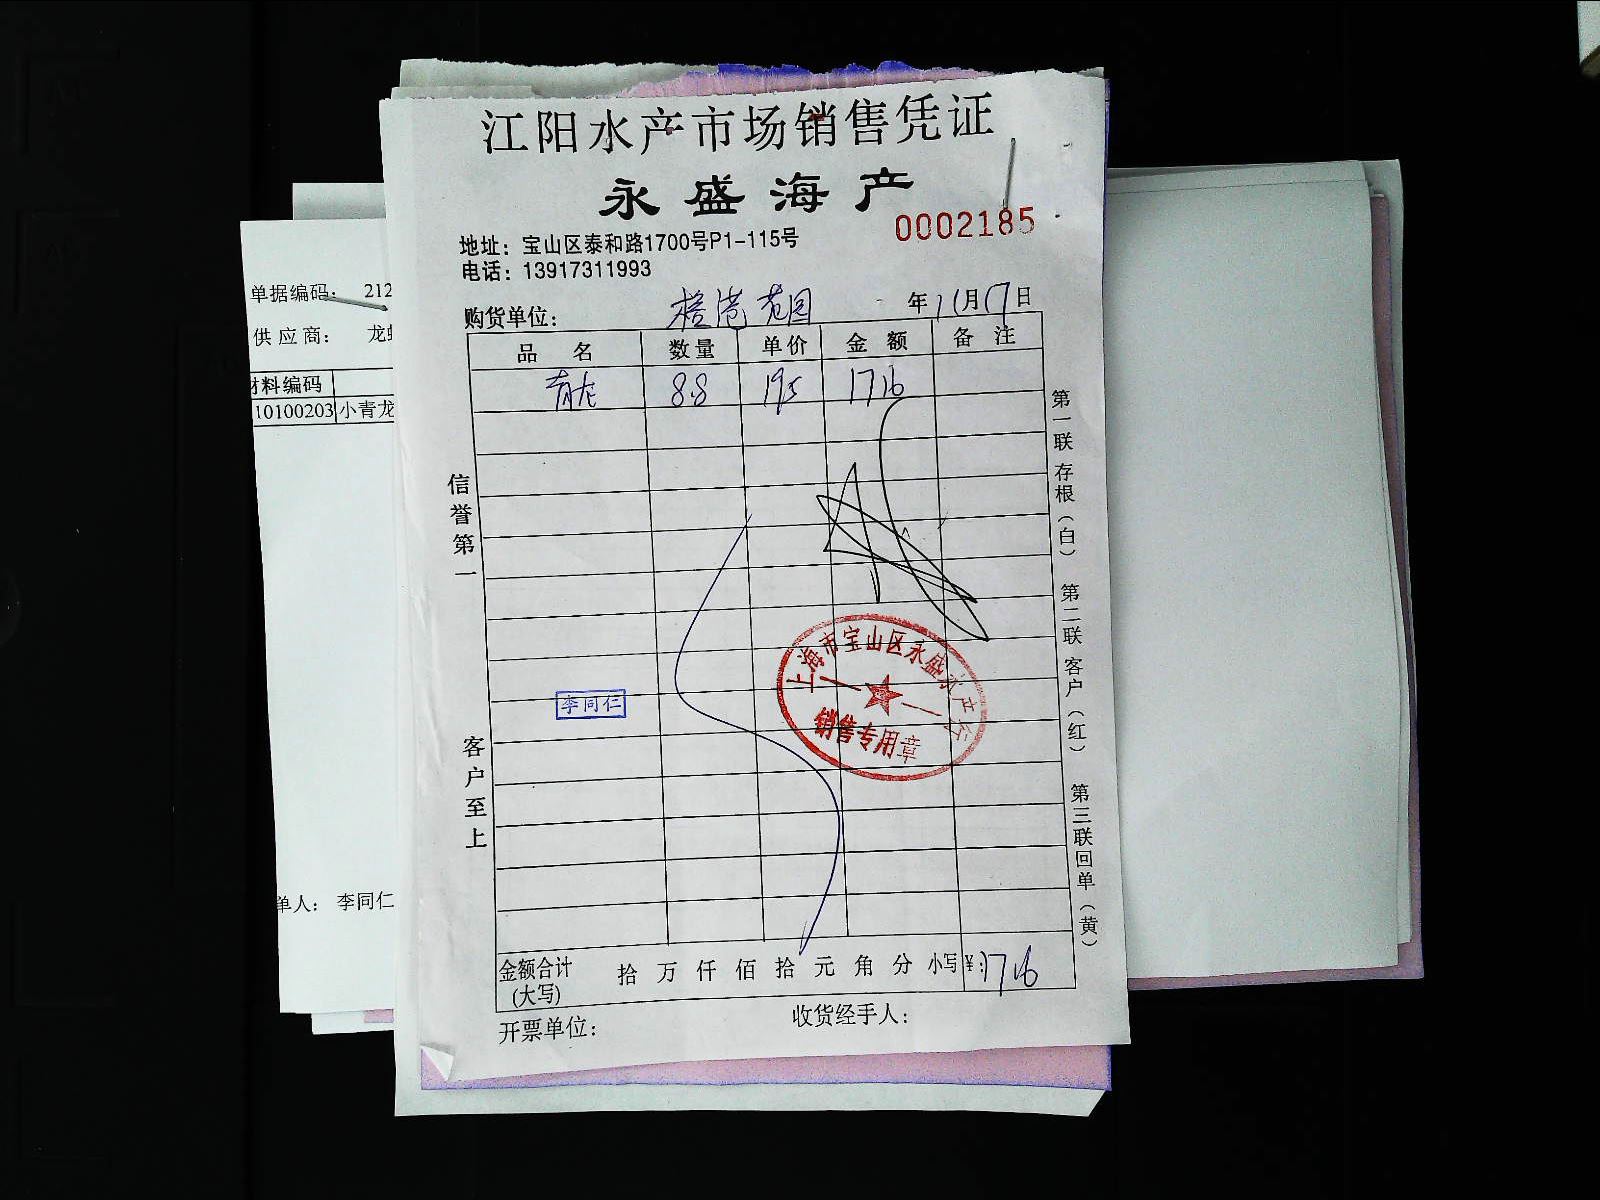 江阳水产市场销售凭证
永盛海产
0002185
地址：宝山区泰和路1700号P1-115号
电话：13917311993
购货单位： 年11月17日
品名 数量 单价 金额 备注
青龙 8.8 195 1716
信誉第一
客户至上
李同仁
上海市宝山区永盛水产行
销售专用章
第一联 存根（白） 第二联 客户（红） 第三联 回单（黄）
金额合计 拾 万 仟 佰 拾 元 角 分 小写￥：1716
(大写)
开票单位： 收货经手人：
单据编码： 212
供应商： 龙
材料编码
10100203 小青龙
单人： 李同仁